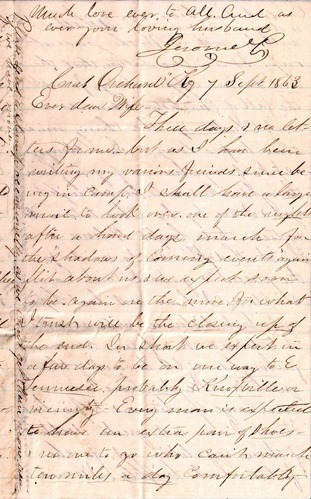 Much love ever to All. And as
ever your loving husband
Jerome
Crab Orchard Ky 7 Sept 1863
Ever dear Wife
Three days & no let-
ters for me. but as I have been
writing my various friends since be-
ing in camp, I shall have a large
mail to look over one of these nights
after a hard days march for
the "shadows of coming events" again
flit about us & we expect soon
to be again on the move, for what
I trust will be the closing up of
the end. In short we expect in
a few days to be on our way to E
Tennessee, probably Knoxville or
vicinity. Every man is expected
to have an extra pair of shoes
& no one to go who can't march
ten miles a day comfortably